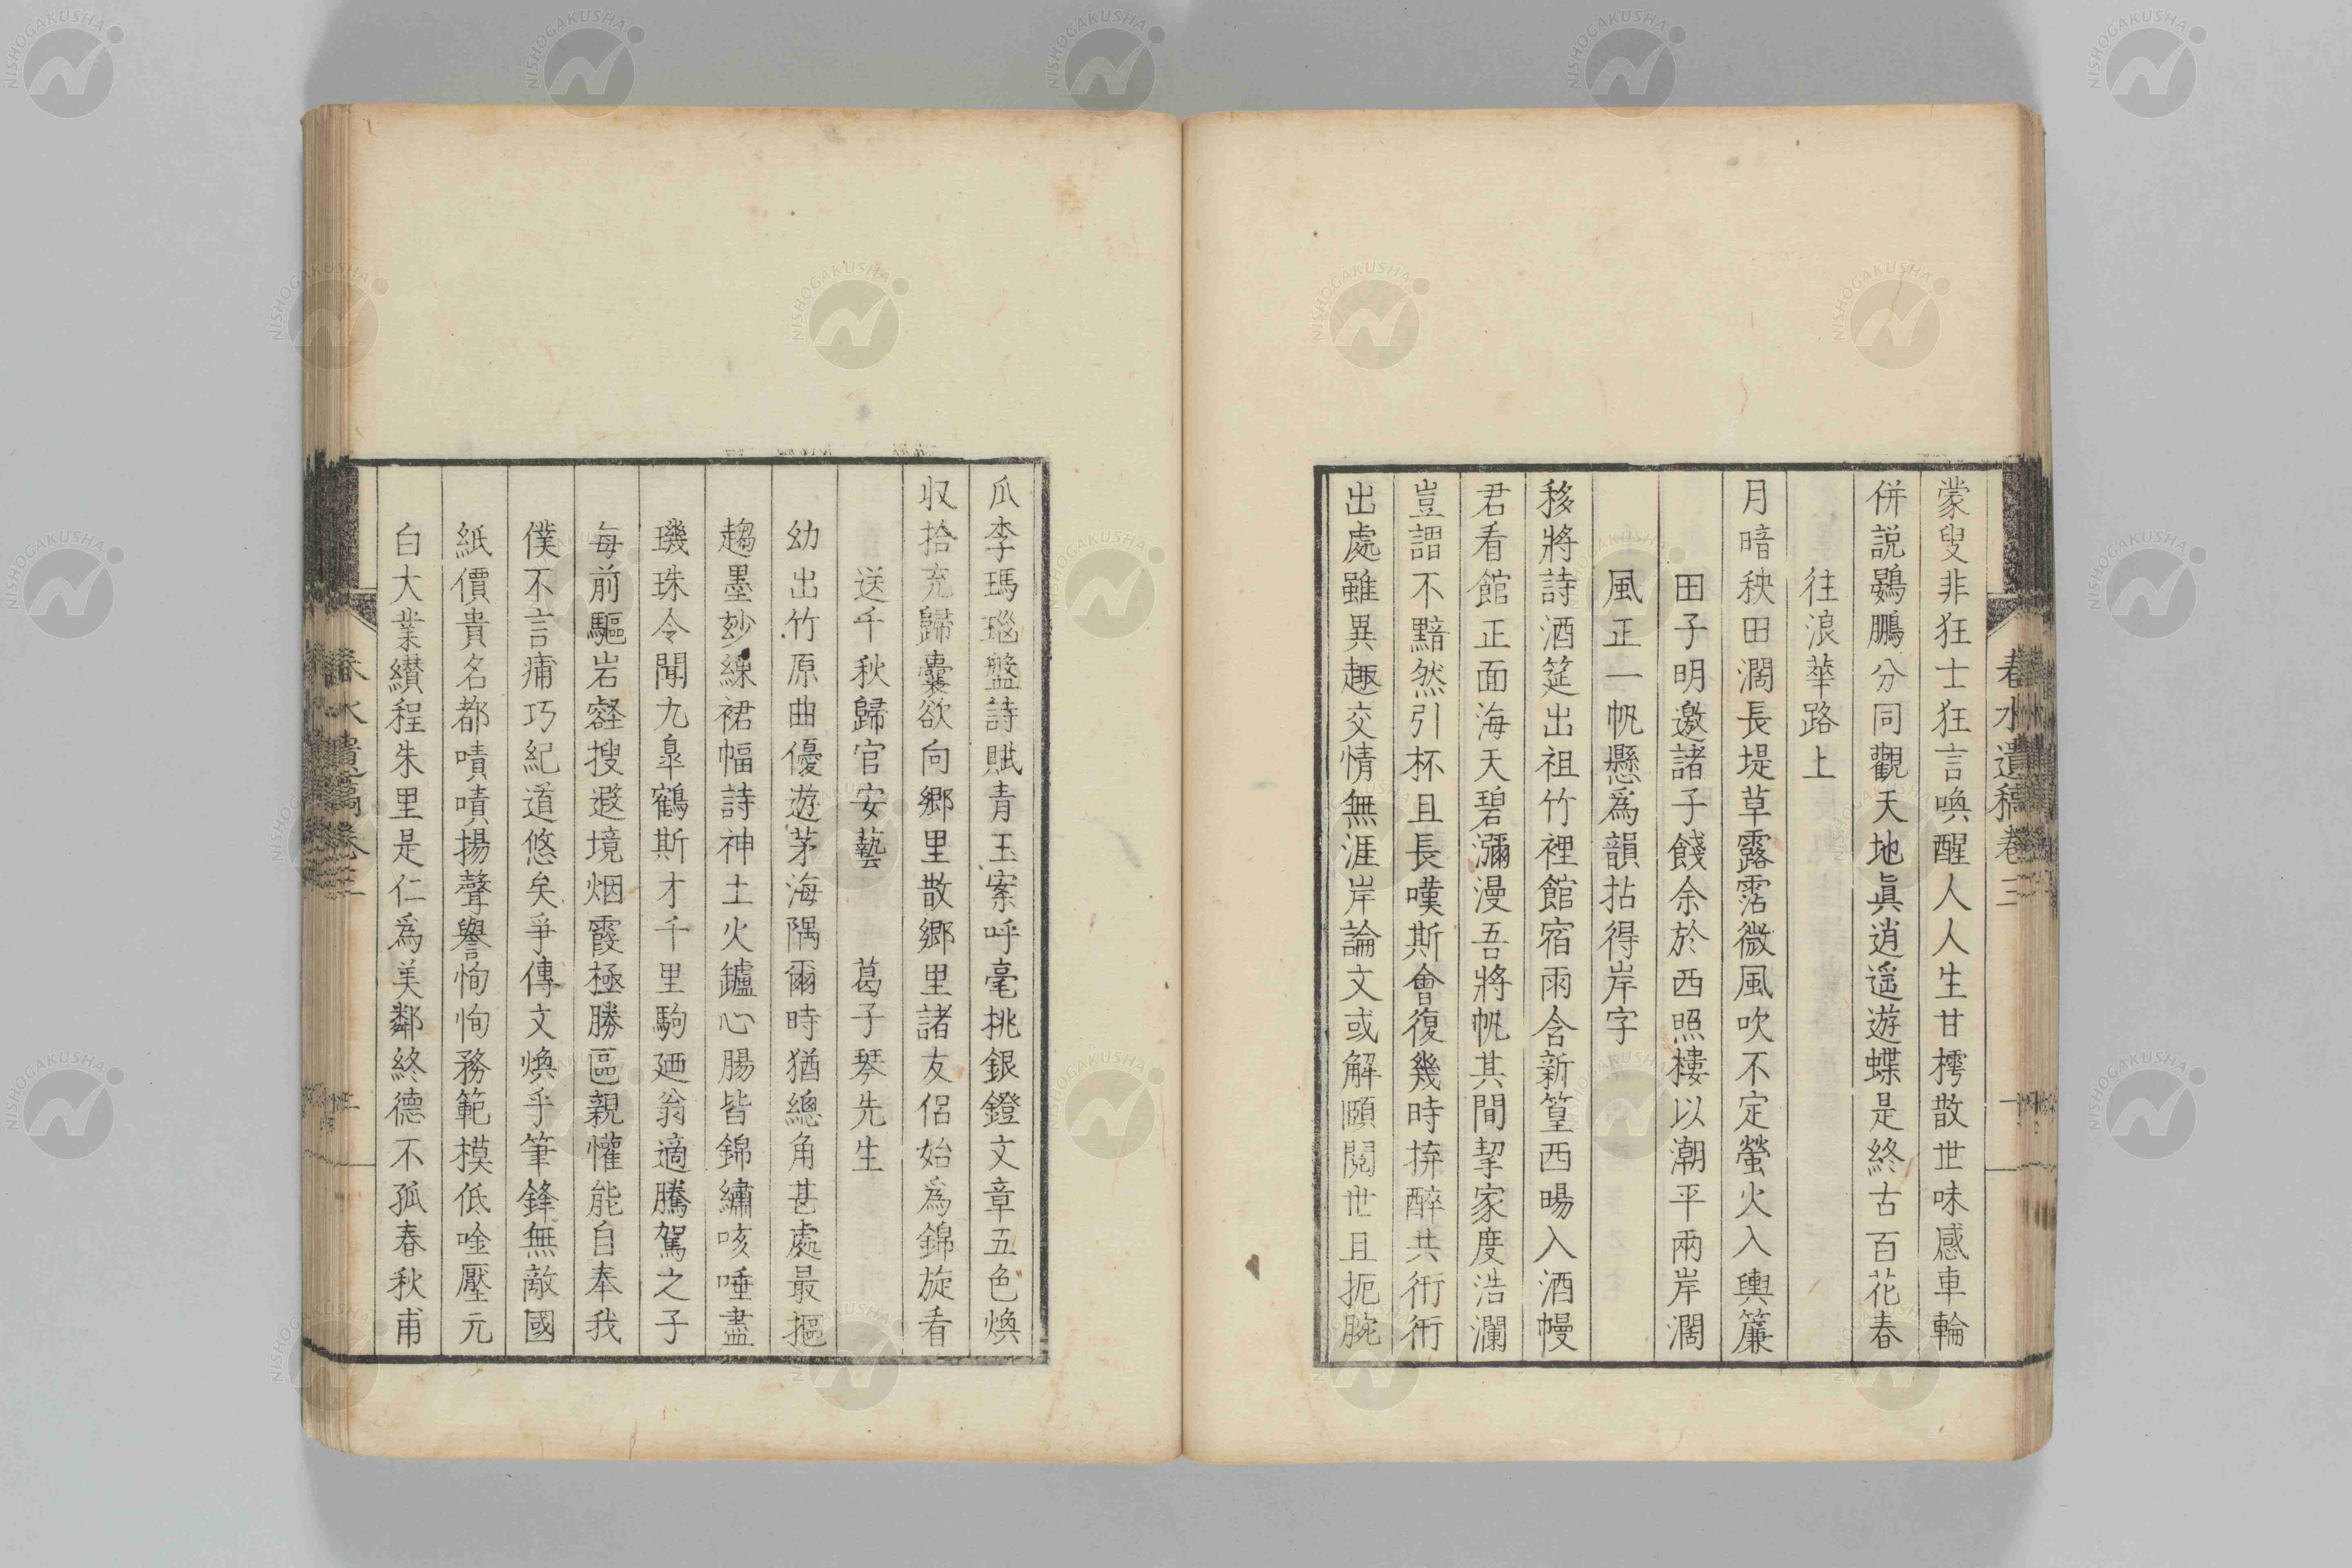 蒙叟非狂士狂言喚醒人人生甘樗散世味感車輪
併説鷃鵬分同觀天地眞逍遥遊蝶是終古百花春
往浪華路上
月暗秧田濶長堤草露霑微風吹不定螢火入輿簾
田子明邀諸子餞余於西照樓以潮平兩岸濶
風正一帆懸爲韻拈得岸字
移將詩酒筵出祖竹裡館宿雨含新篁西暘入酒幔
君看館正面海天碧瀰漫吾將帆其間挈家度浩瀾
豈謂不黯然引杯且長嘆斯會復幾時拚醉共衎衎
出處雖異趣交情無涯岸論文或解頤閱世且扼腕
春水遺稿卷三
瓜李瑪瑙盤詩賦青玉案呼毫挑銀鐙文章五色煥
収拾充歸囊欲向郷里散郷里諸友侶始爲錦旋看
送千秋歸官安藝 葛子琴先生
幼出竹原曲優遊茅海隅爾時猶總角甚處最摳
趨墨玅練裙幅詩神土火鑪心腸皆錦繡咳唾盡
璣珠令聞九臯鶴斯才千里駒廼翁適騰駕之子
每前驅岩壑搜遐境烟霞極勝區親懽能自奉我
僕不言痡巧紀道悠矣爭傳文煥乎筆鋒無敵國
紙價貴名都嘖嘖揚聲譽恂恂務範模低唫壓元
白大業纉程朱里是仁爲美鄰終德不孤春秋甫
春水遺稿卷三